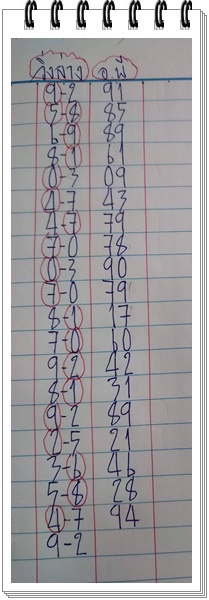 วิ่งล่าง อ.พี
9-2 91
5-8 85
6-9 89
8-1 61
0-3 09
4-7 43
4-7 79
7-0 78
0-3 90
7-0 79
8-1 17
7-0 60
9-2 42
8-1 31
9-2 89
2-5 21
3-6 46
5-8 28
4-7 94
9-2